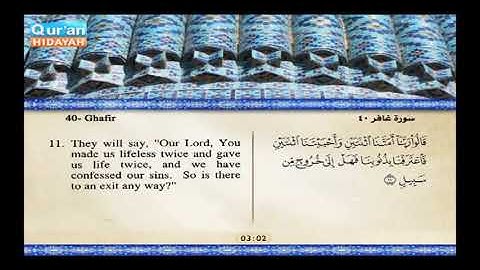 Qur'an
HIDAYAH
40- Ghafir
سورة غافر ٤٠
11. They will say, "Our Lord, You
made us lifeless twice and gave
us life twice, and we have
confessed our sins. So is there
to an exit any way?"
قَالُوا رَبَّنَا أَمَتَّنَا اثْنَتَيْنِ وَأَحْيَيْتَنَا اثْنَتَيْنِ
فَاعْتَرَفْنَا بِذُنُوبِنَا فَهَلْ إِلَىٰ خُرُوجٍ مِّن
سَبِيلٍ ١١
03:02